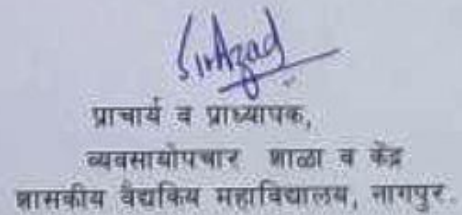 प्राचार्य व प्राध्यापक,
व्यवसायोपचार शाळा व केंद्र
शासकीय वैद्यकिय महाविद्यालय, नागपुर.